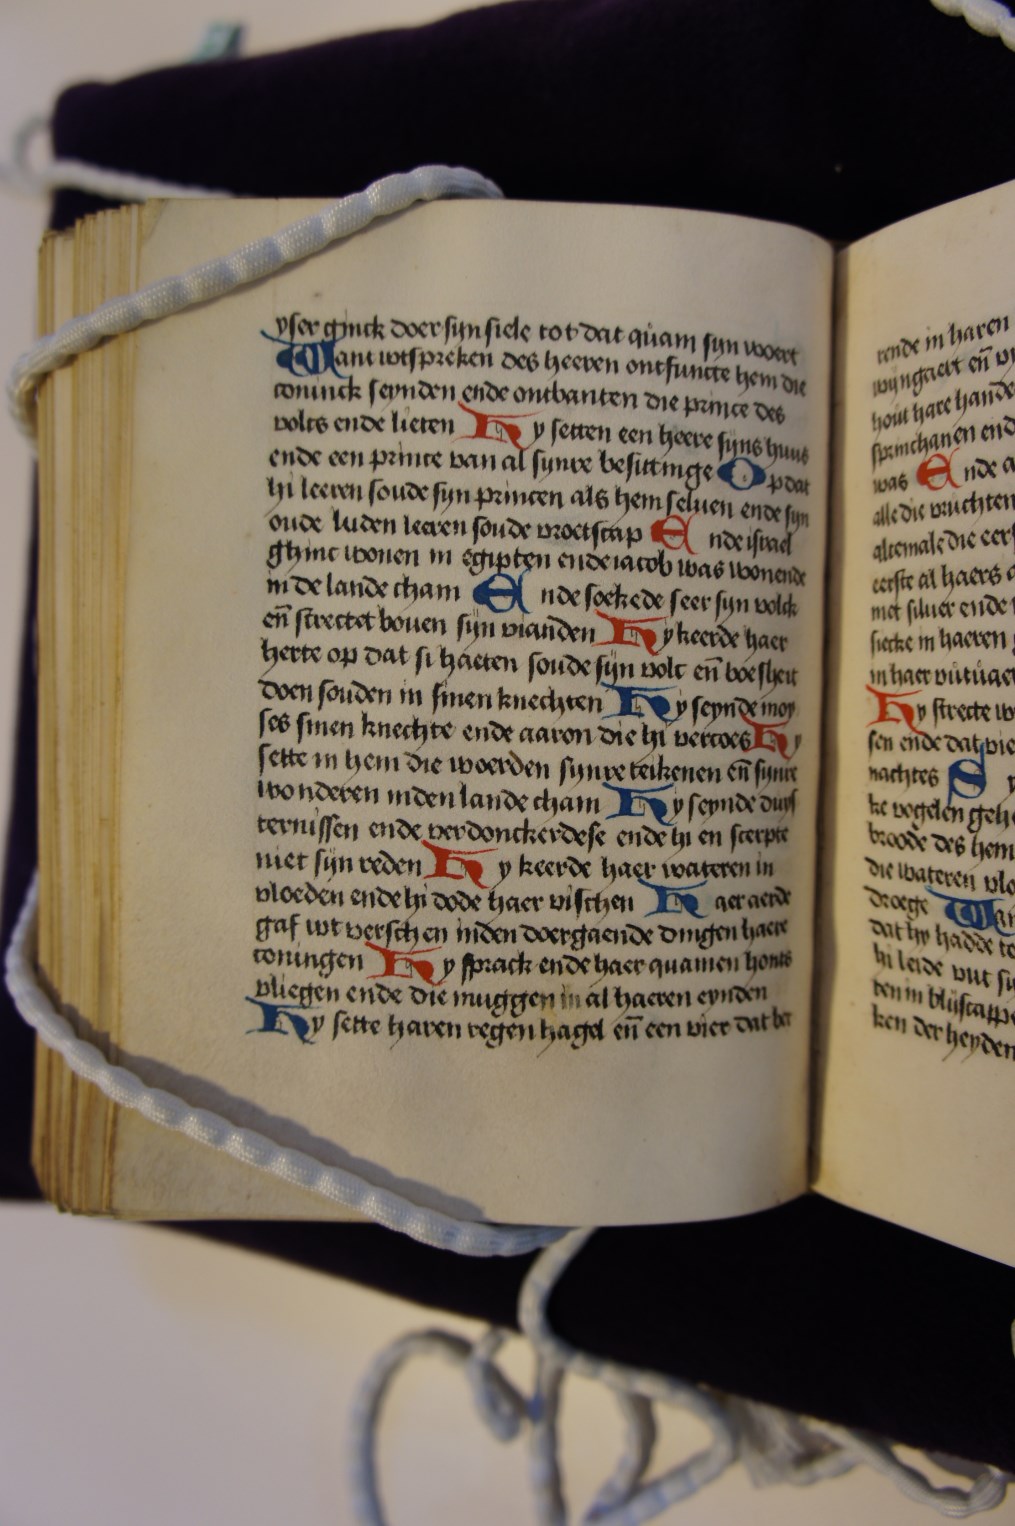 yser ginck doer sijn siele tot dat quam syn woert
Want wtspreken des heeren ontfuncte hem die
coninck seynden ende ontbanten die prince des
volcs ende lieten Hy setten een heere syns huus
ende een prince van al synre besittinge Op dat
hi leeren soude syn princen als hem seluen ende syn
oude luden leeren soude vroetscap Ende israel
ghinc wonen in egipten ende iacob was wonende
in de lande cham Ende soekede seer syn volck
en̄ strectet bouen sijn vianden Hy keerde haer
herte op dat si haeten soude sijn volc en̄ boesheit
doen souden in sinen knechten Hy seynde moy
ses sinen knechte ende aaron die hi vercoes Hy
sette in hem die woerden synre teikenen en̄ synre
wonderen inden lande cham Hy seynde duys
ternissen ende verdonckerdese ende hi en scerpte
niet sijn reden Hy keerde haer wateren in
vloeden ende hi dode haer visschen Haer aerde
gaf wt verschen inden doergaende dingen haere
coningen Hy sprack ende haer quamen honts
vliegen ende die muggen in al haeren eynden
Hy sette haren regen hagel en̄ een vier dat ber
rende in haren
wyngaert en̄
hout hare hande
sprinchanen end
was Ende
alle die vruchten
altemale die eers
eerste al haers
met siluer ende
siecke in haeren
in haer
Hy strecte
sen ende dat
nachtes S
ke vogelen
broode des hem
die wateren
droege Wan
dat hy hadde
hi leide wt
ken der heyden